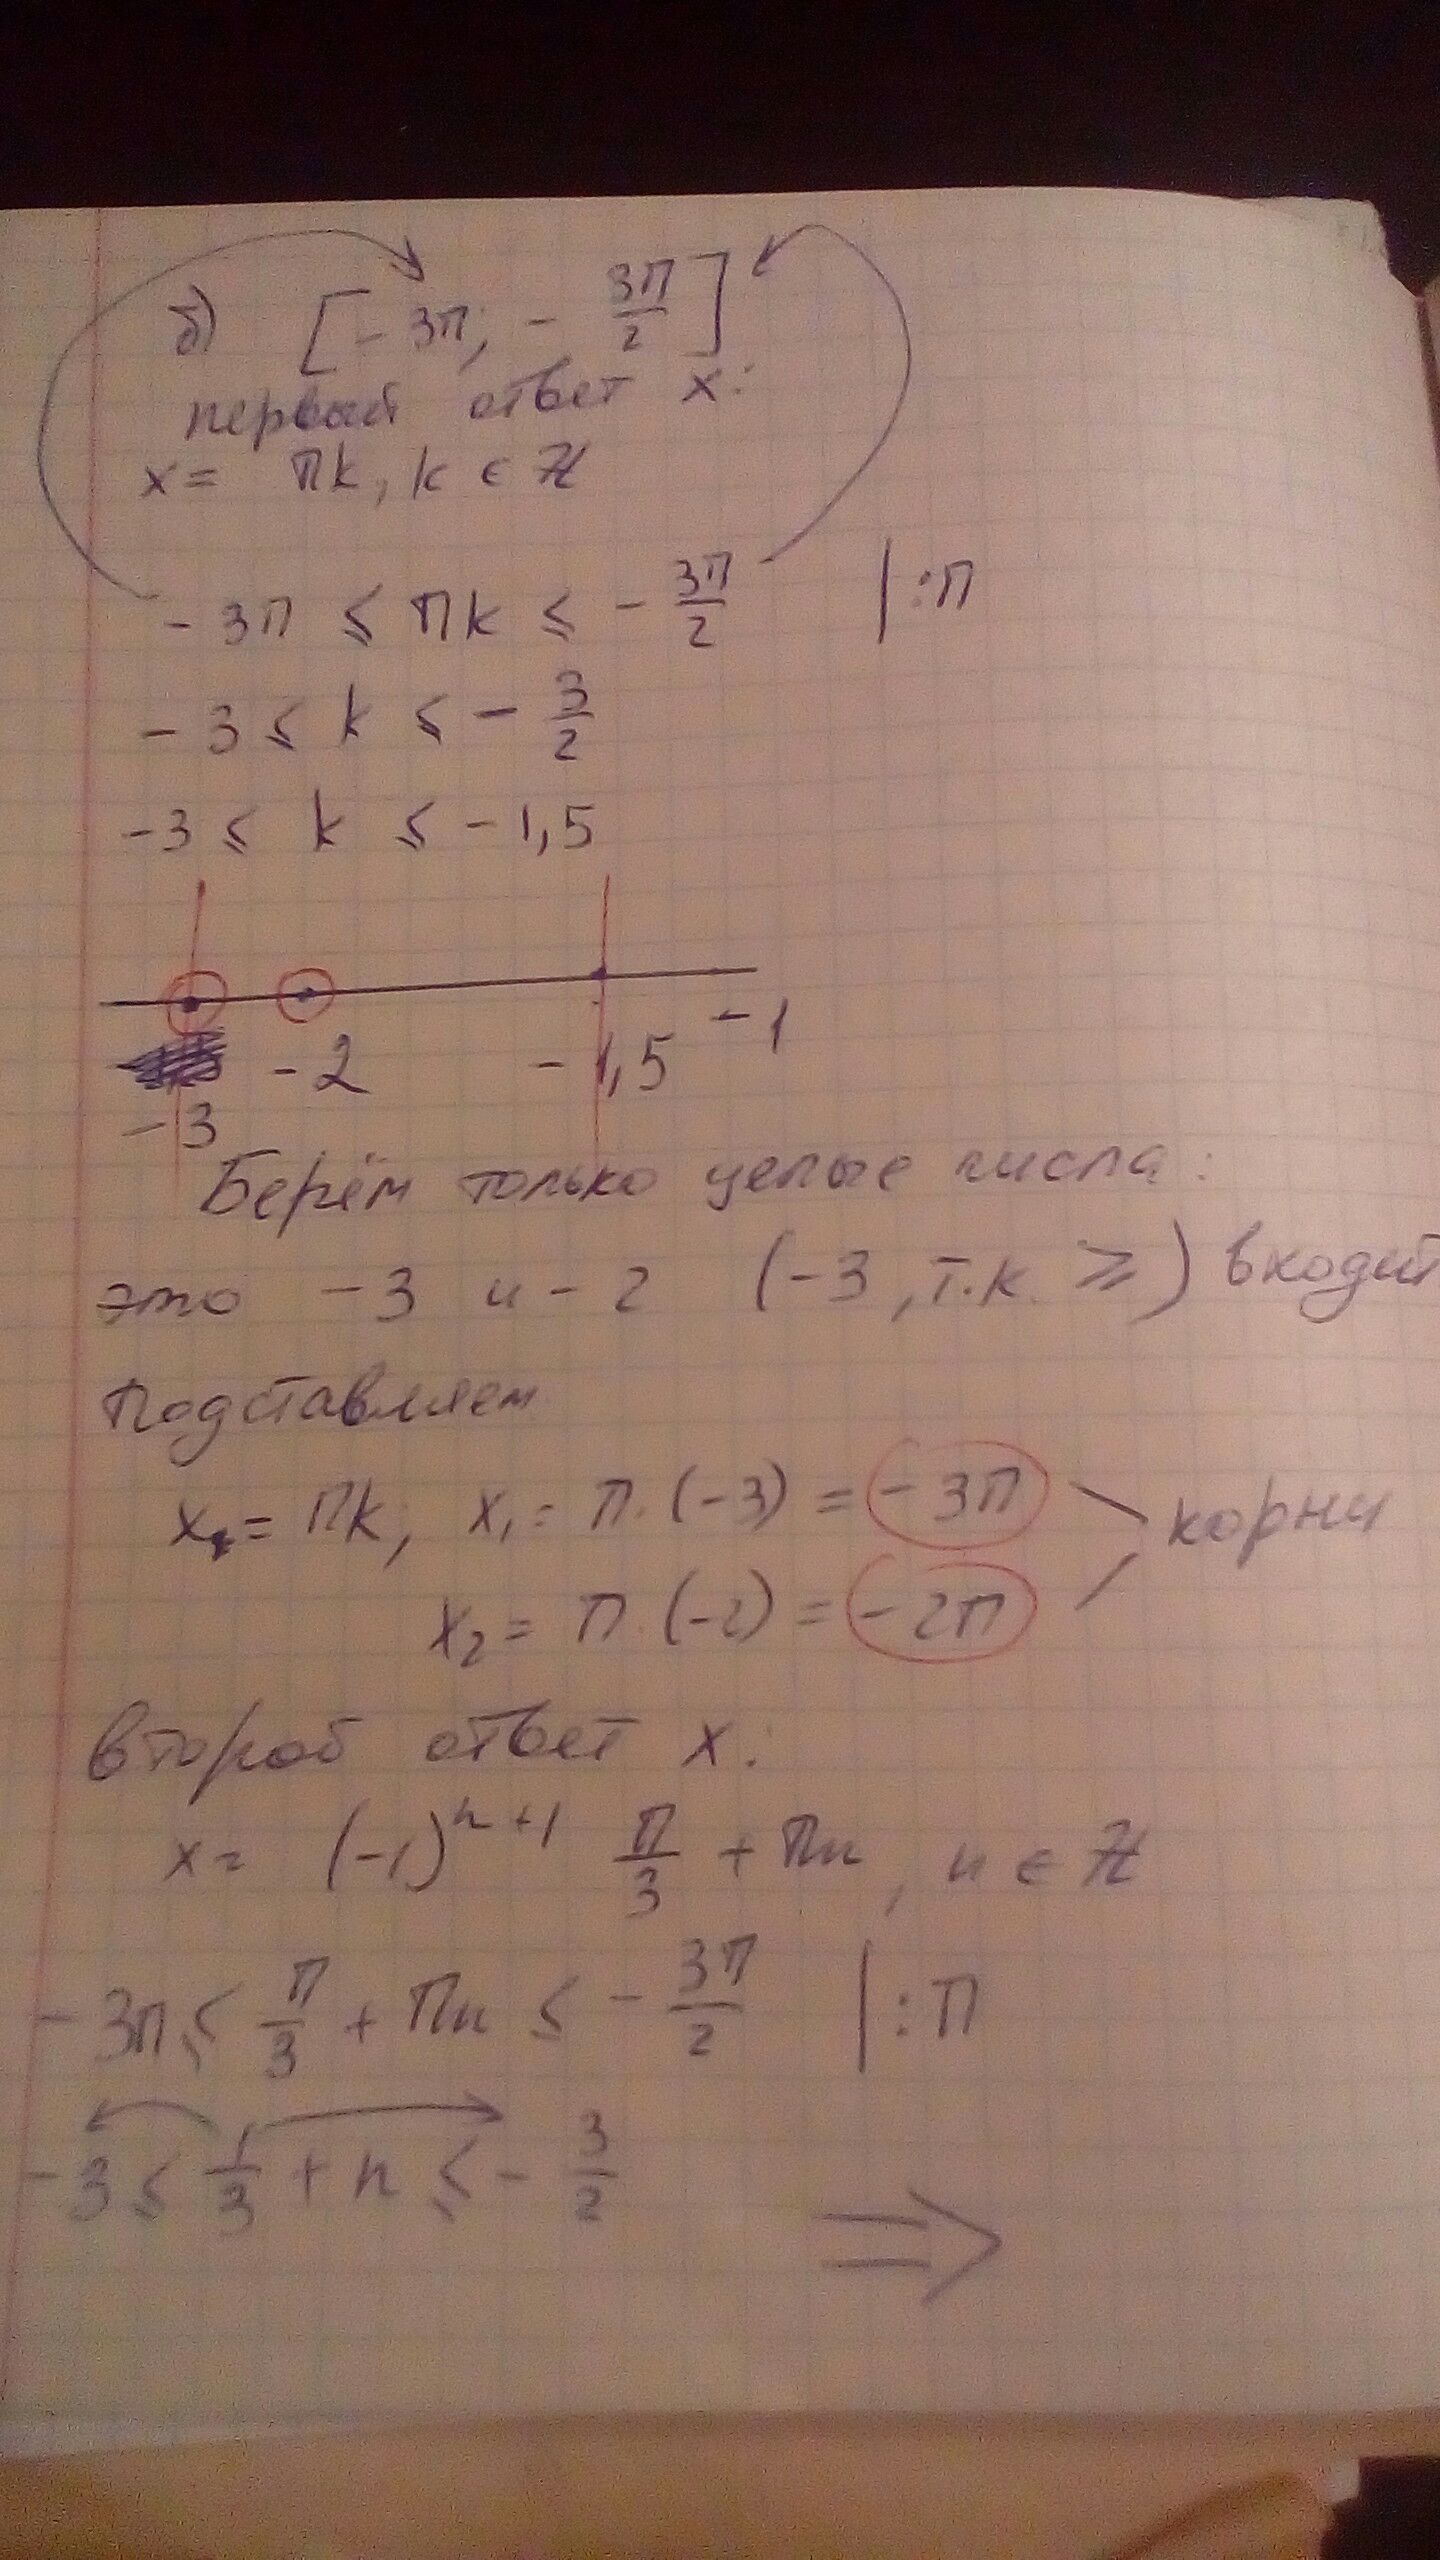 б) [-3π; -3π/2]
первый ответ x:
x = πk, k ∈ Z
-3π ≤ πk ≤ -3π/2 |:π
-3 ≤ k ≤ -3/2
-3 ≤ k ≤ -1,5
-3 -2 -1,5 -1
Берём только целые числа:
это -3 и -2 (-3, т.к. ⩾) входит
Подставляем
x = πk; x₁ = π·(-3) = -3π
x₂ = π·(-2) = -2π
корни
второй ответ x:
x = (-1)ⁿ⁺¹ π/3 + πn, n ∈ Z
-3π ≤ π/3 + πn ≤ -3π/2 |:π
-3 ≤ 1/3 + n ≤ -3/2 ⇒